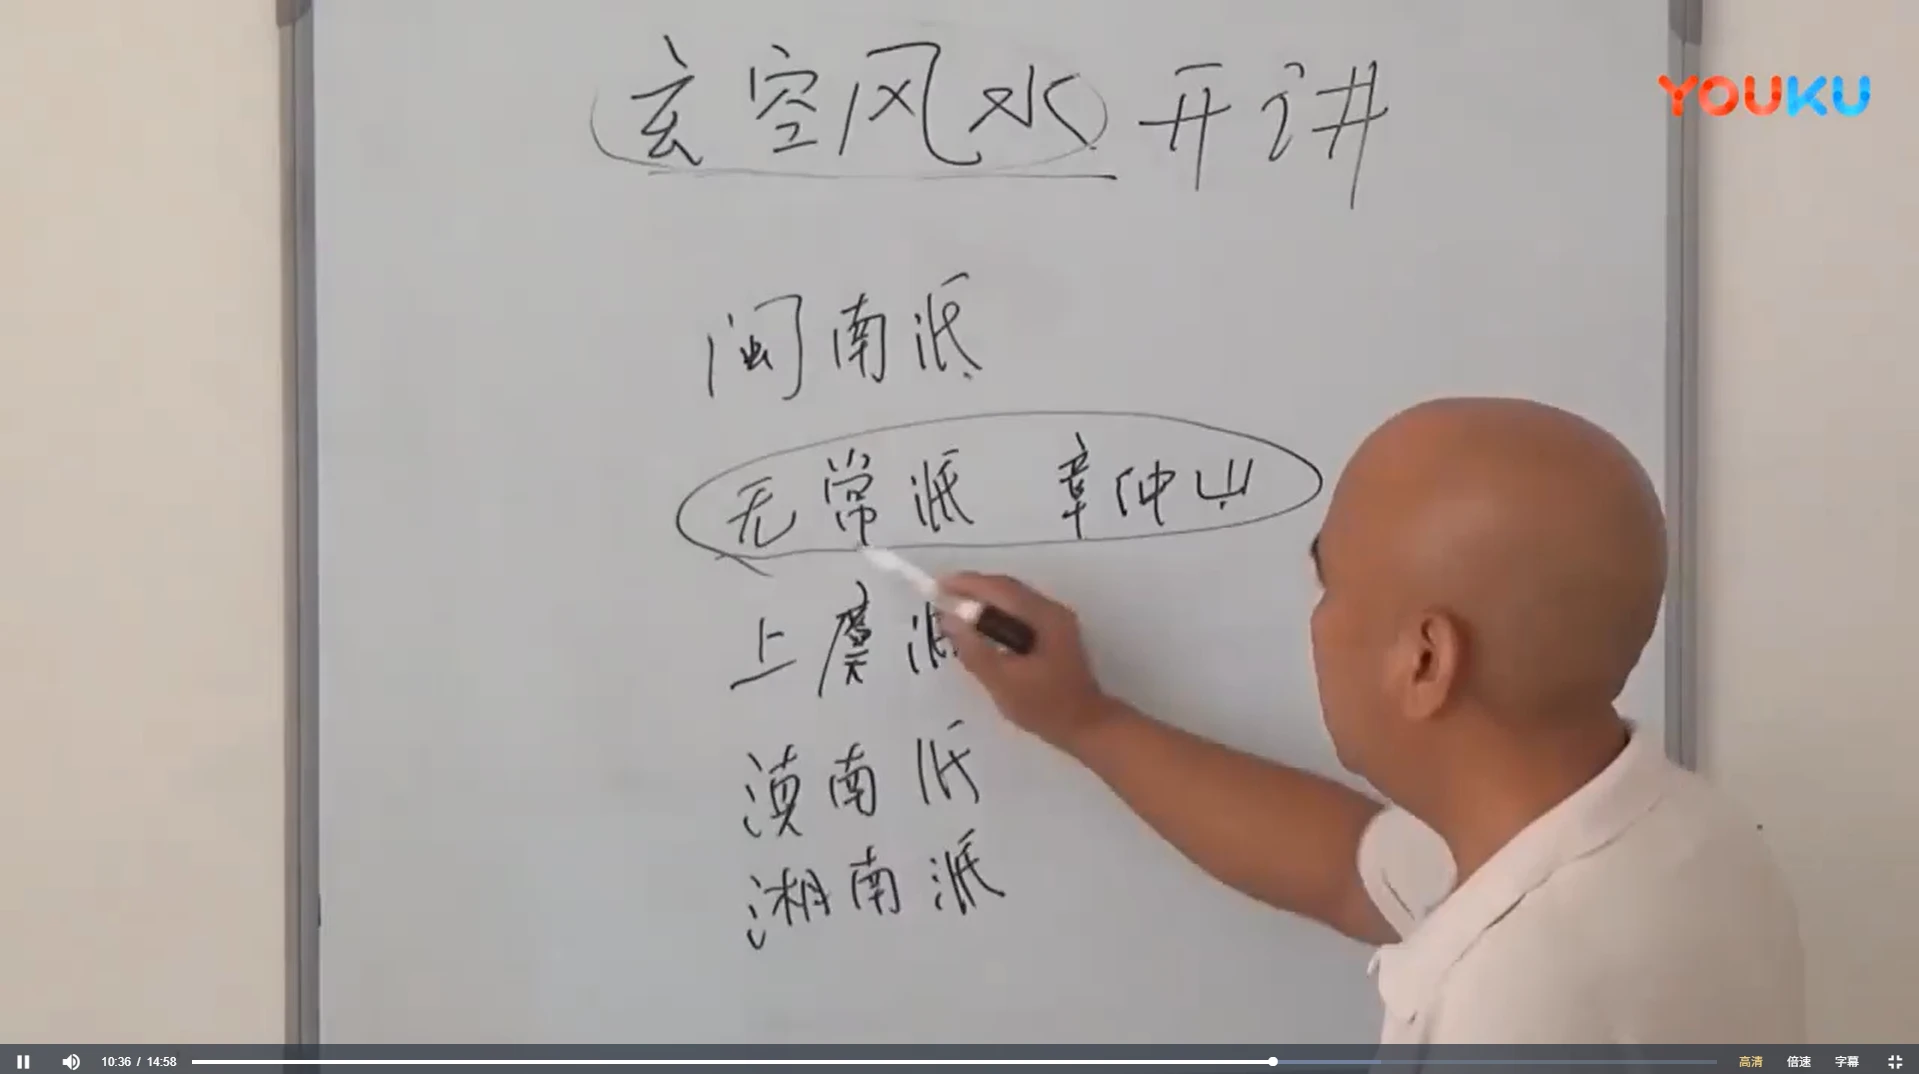 玄空风水开讲
YOUKU
闽南派
无常派 章仲山
上虞派
滇南派
湘南派
10:36 / 14:58
高清 倍速 字幕